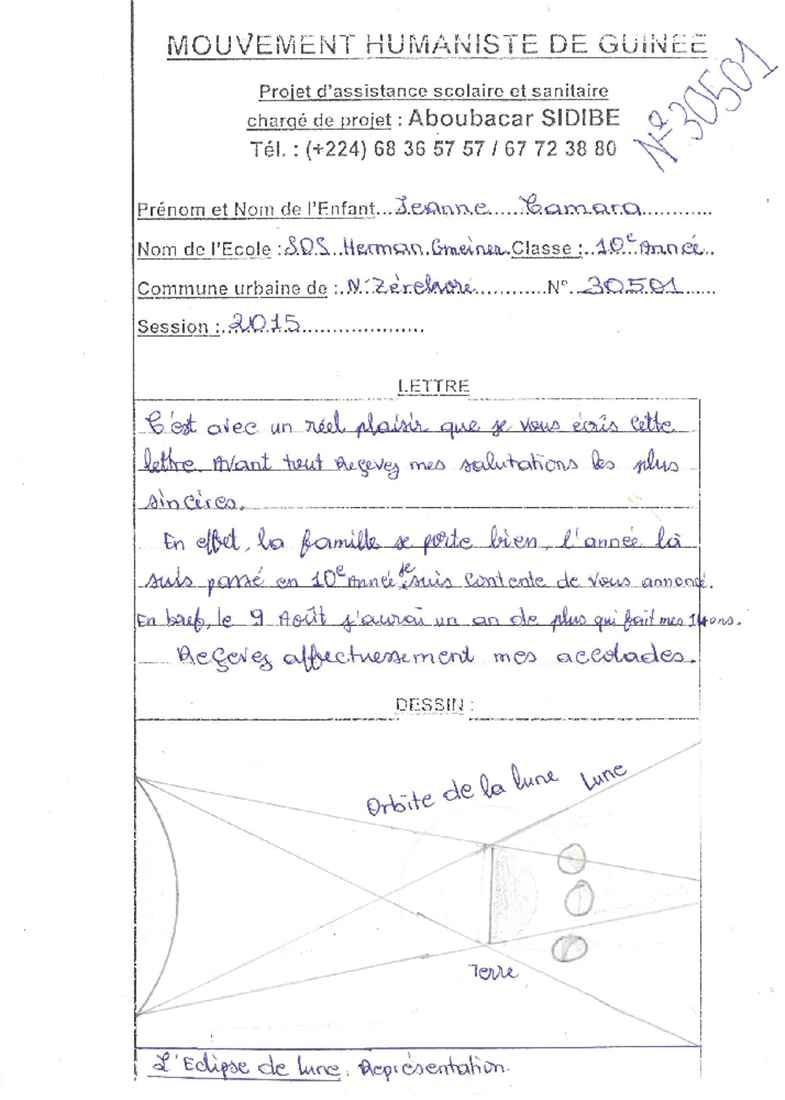 MOUVEMENT HUMANISTE DE GUINEE
Nº 30501
Projet d'assistance scolaire et sanitaire
chargé de projet : Aboubacar SIDIBE
Tél. : (+224) 68 36 57 57 / 67 72 38 80
Prénom et Nom de l'Enfant...Jeanne.....Camara............
Nom de l'Ecole :S.O.S..Herman.Gmeiner.Classe :..10e Année..
Commune urbaine de :..N'Zérekoré............N°..30501......
Session :.2015...................
LETTRE
C'est avec un réel plaisir que je vous écris cette
lettre. Avant tout Reçevez mes salutations les plus
sincères.
En effet, la famille se porte bien, l'année là
suis passé en 10e Année je suis contente de vous annoncé.
En bref, le 9 Août j'aurai un an de plus qui fait mes 14ans.
Reçevez affectuessement mes accolades.
DESSIN :
Orbite de la lune Lune
Terre
L'Eclipse de lune. Représentation.